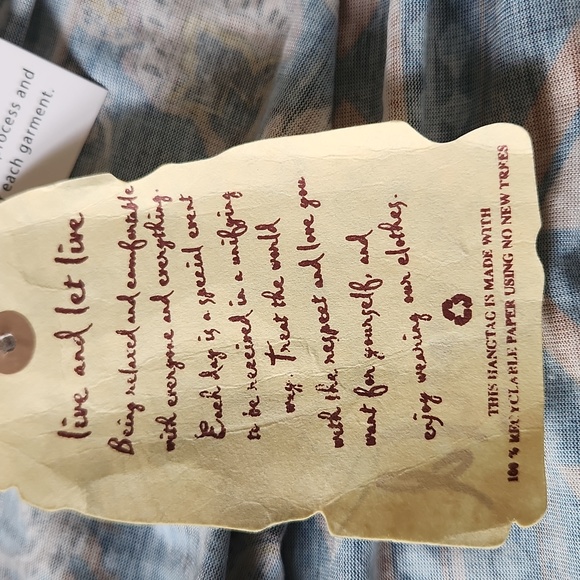 live and let live
Being relaxed and comfortable
with everyone and everything.
Each day is a special event
to be received in a unifying
way. Treat the world
with the respect and love you
want for yourself, and
enjoy wearing our clothes.
THIS HANGTAG IS MADE WITH
100 % RECYCLABLE PAPER USING NO NEW TREES
process and
each garment.